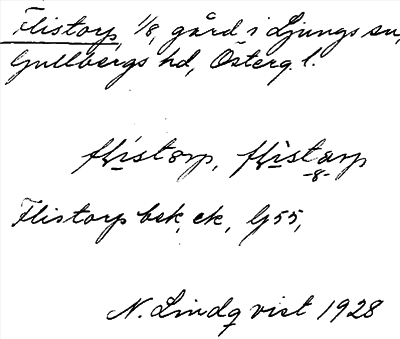 Flistorp, 1/8, gård i Ljungs sn,
Gullbergs hd, Österg. l.
flistærp, flistærp
-8-
Flistorp bsk, ek, Lj 55,
N. Lindqvist 1928